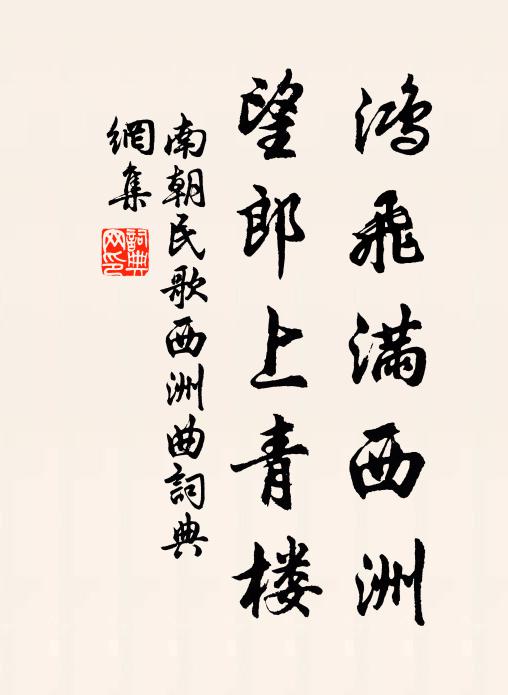 鸿飛满西洲
望郎上青楼
南朝民歌西洲曲詞典
網集
詞典
网印